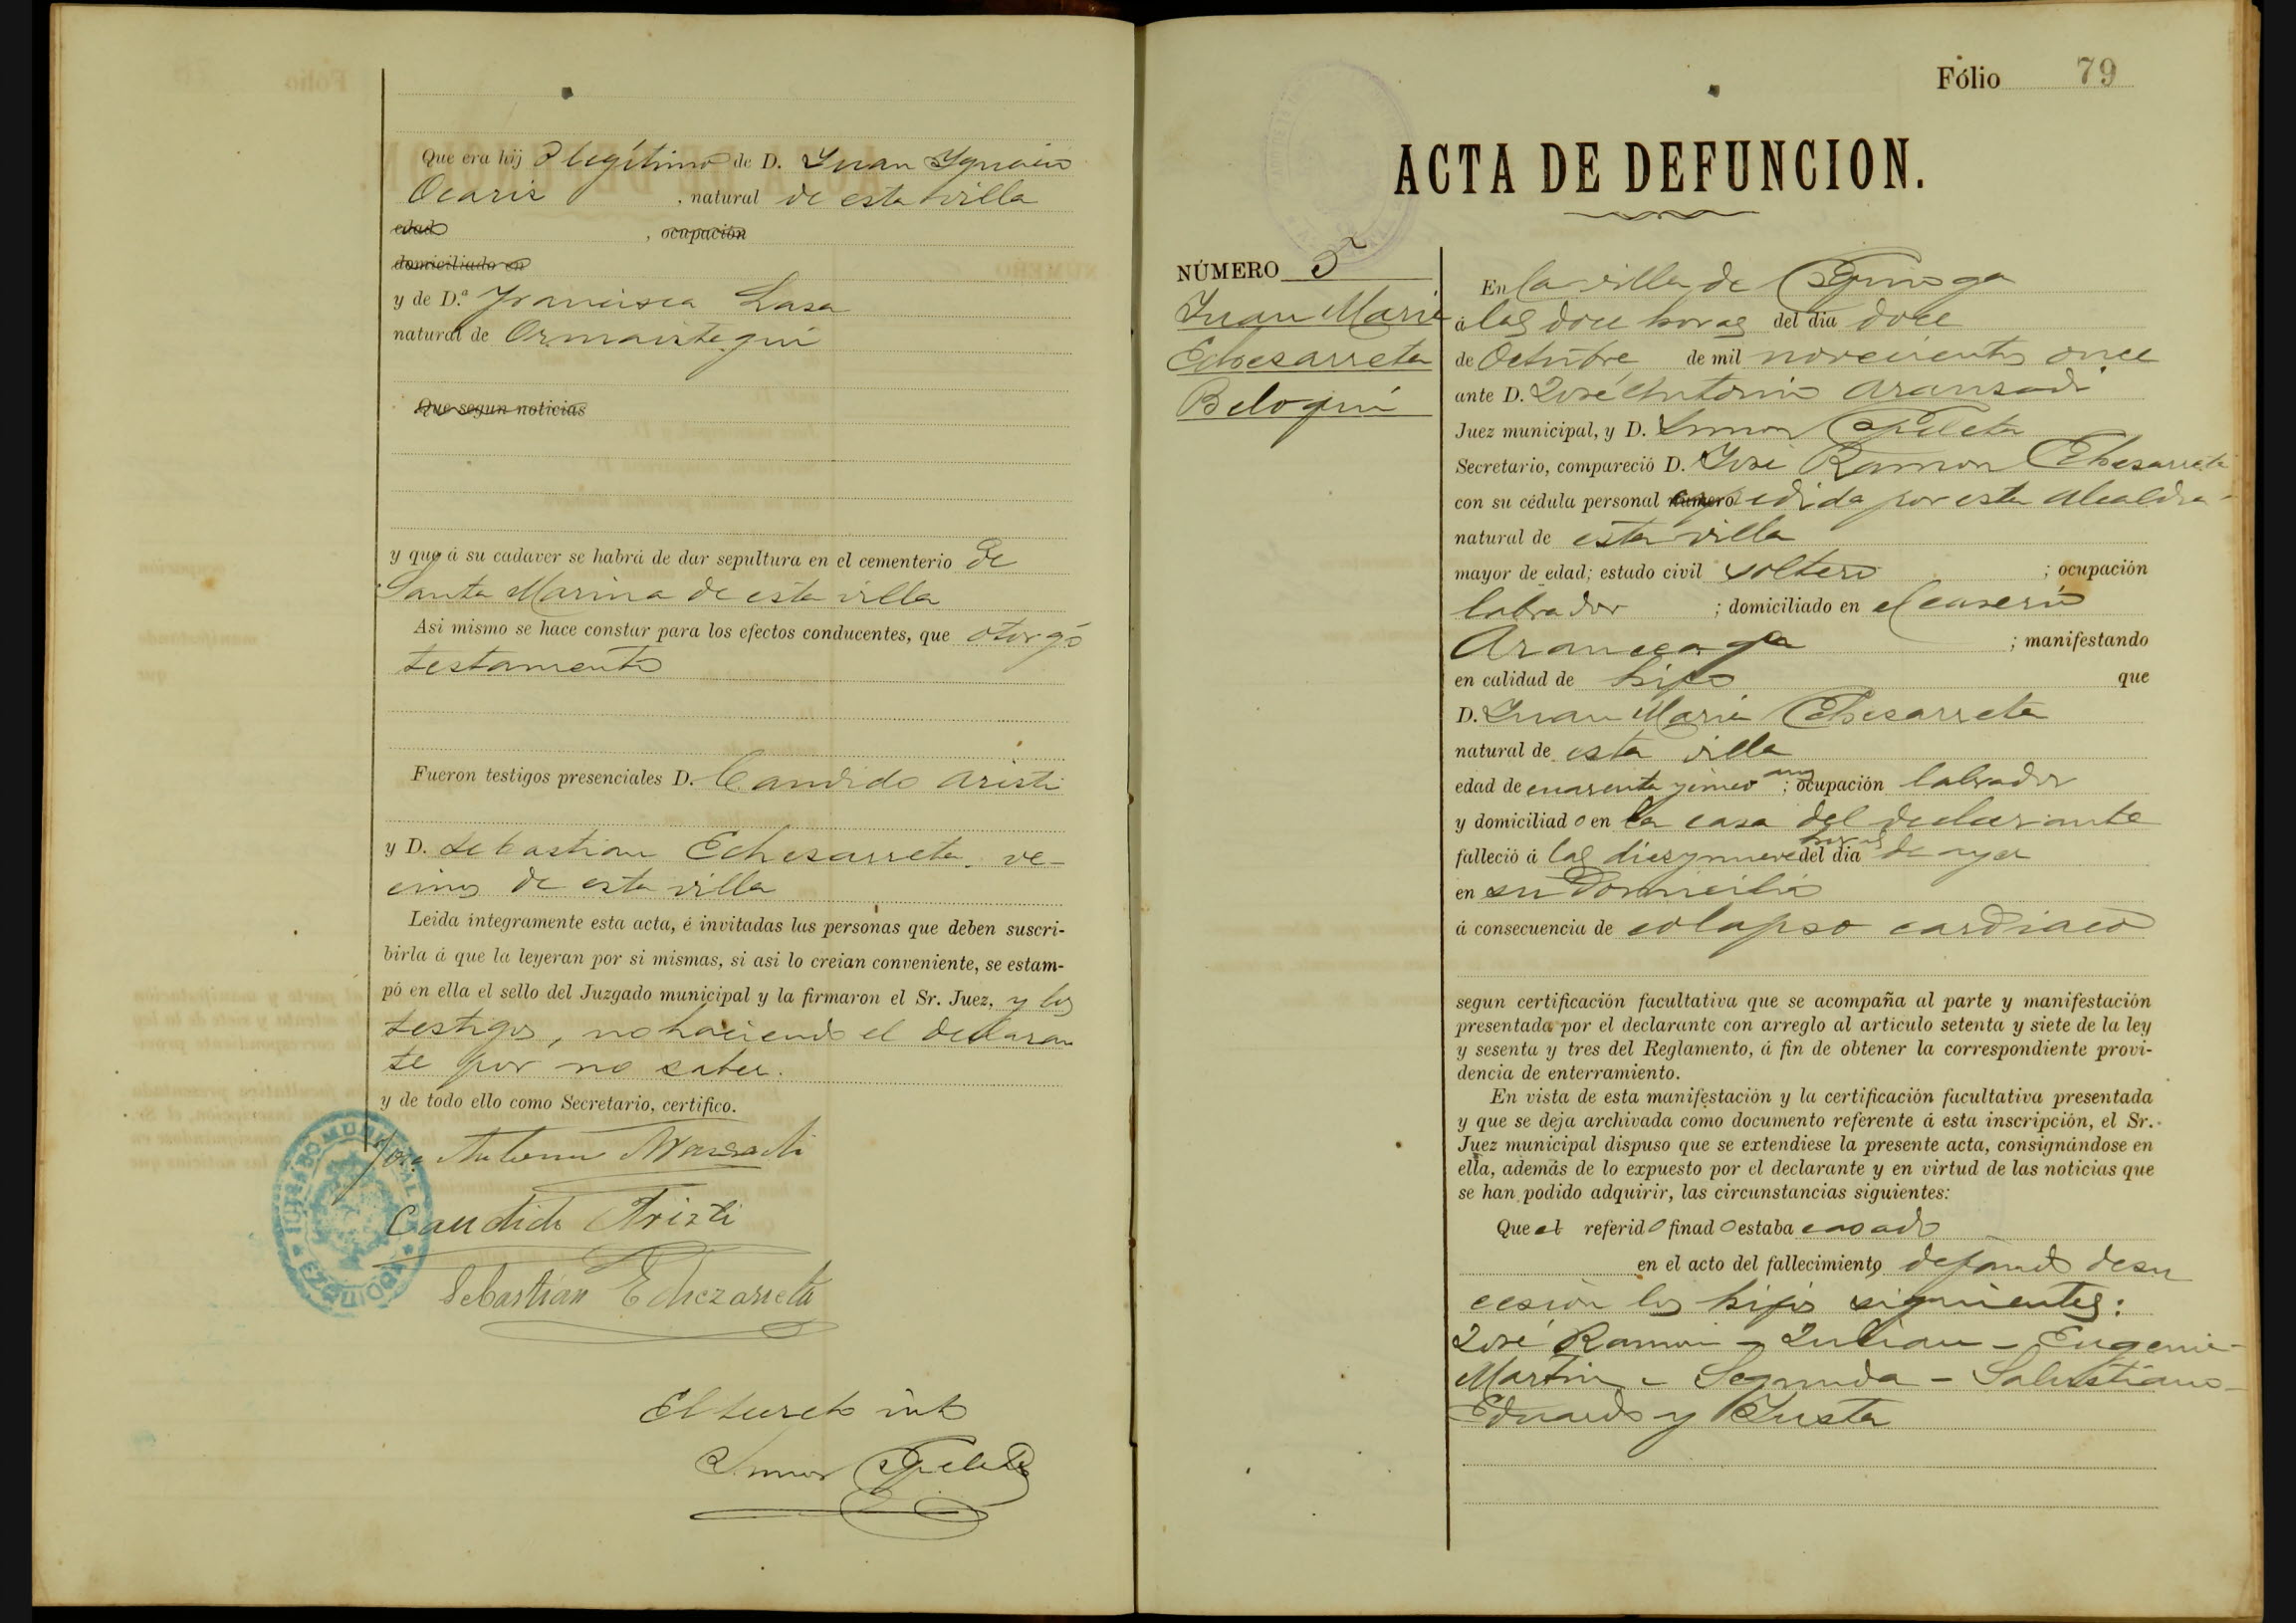 Que era hijo legítimo de D. Juan Ygnacio
Ocariz, natural de esta villa
edad , ocupación
domiciliado en
y de D.ª Francisca Lasa
natural de Ormaiztegui
Que segun noticias
y que á su cadaver se habrá de dar sepultura en el cementerio de
Santa Marina de esta villa
Asi mismo se hace constar para los efectos conducentes, que otorgó
testamento
Fueron testigos presenciales D. Candido Aristi
y D. Sebastian Echesarreta, ve-
cinos de esta villa
Leida íntegramente esta acta, é invitadas las personas que deben suscri-
birla á que la leyeran por si mismas, si asi lo creian conveniente, se estam-
pó en ella el sello del Juzgado municipal y la firmaron el Sr. Juez, y los
testigos, no haciendo el declaran
te por no saber.
y de todo ello como Secretario, certifico.
José Antonio Aranzadi
Candido Aristi
Sebastián Echezarreta
El Secreto into
Simon
JUZGADO MUNICIPAL
Fólio 79
ACTA DE DEFUNCION.
NÚMERO 5
Juan María
Echesarreta
Beloqui
En la villa de
á las doce horas del dia doce
de Octubre de mil novecientos once
ante D. José Antonio Aranzadi
Juez municipal, y D. Simon
Secretario, compareció D. José Ramon Echesarreta
con su cédula personal número expedida por esta Alcaldia
natural de esta villa
mayor de edad; estado civil soltero ; ocupación
labrador ; domiciliado en el caserio
; manifestando
en calidad de hijo que
D. Juan María Echesarreta
natural de esta villa
edad de cuarenta y cinco años ; ocupación labrador
y domiciliado en la casa del declarante
falleció á las diez y nueve horas del dia de ayer
en su domicilio
á consecuencia de colapso cardiaco
segun certificación facultativa que se acompaña al parte y manifestación
presentada por el declarante con arreglo al articulo setenta y siete de la ley
y sesenta y tres del Reglamento, á fin de obtener la correspondiente provi-
dencia de enterramiento.
En vista de esta manifestación y la certificación facultativa presentada
y que se deja archivada como documento referente á esta inscripción, el Sr.
Juez municipal dispuso que se extendiese la presente acta, consignándose en
ella, además de lo expuesto por el declarante y en virtud de las noticias que
se han podido adquirir, las circunstancias siguientes:
Que el referido finado estaba casado
en el acto del fallecimiento dejando de su
cesión los hijos siguientes:
José Ramon - Julian - Eugenio -
Martin - Segunda - Salustiano -
Eduardo y Justa